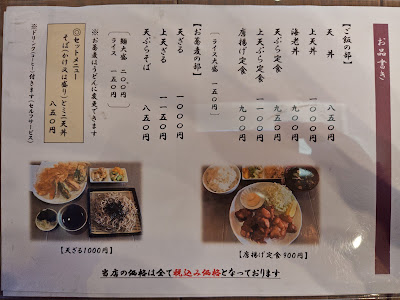 お品書き
【ご飯の部】
天丼 八五〇円
上天丼 一一〇〇円
海老丼 九五〇円
天ぷら定食 九〇〇円
上天ぷら定食 一一〇〇円
唐揚げ定食 九〇〇円
(ライス大盛 一五〇円)
【お蕎麦の部】
天ざる 一〇〇〇円
上天ざる 一一五〇円
天ぷらそば 八五〇円
(麺大盛 二〇〇円
ライス 一五〇円)
※お蕎麦はうどんに変更できます
◎セットメニュー
そば(かけ又は盛り)とミニ天丼 八五〇円
【天ざる1000円】
【唐揚げ定食900円】
当店の価格は全て税込み価格となっております